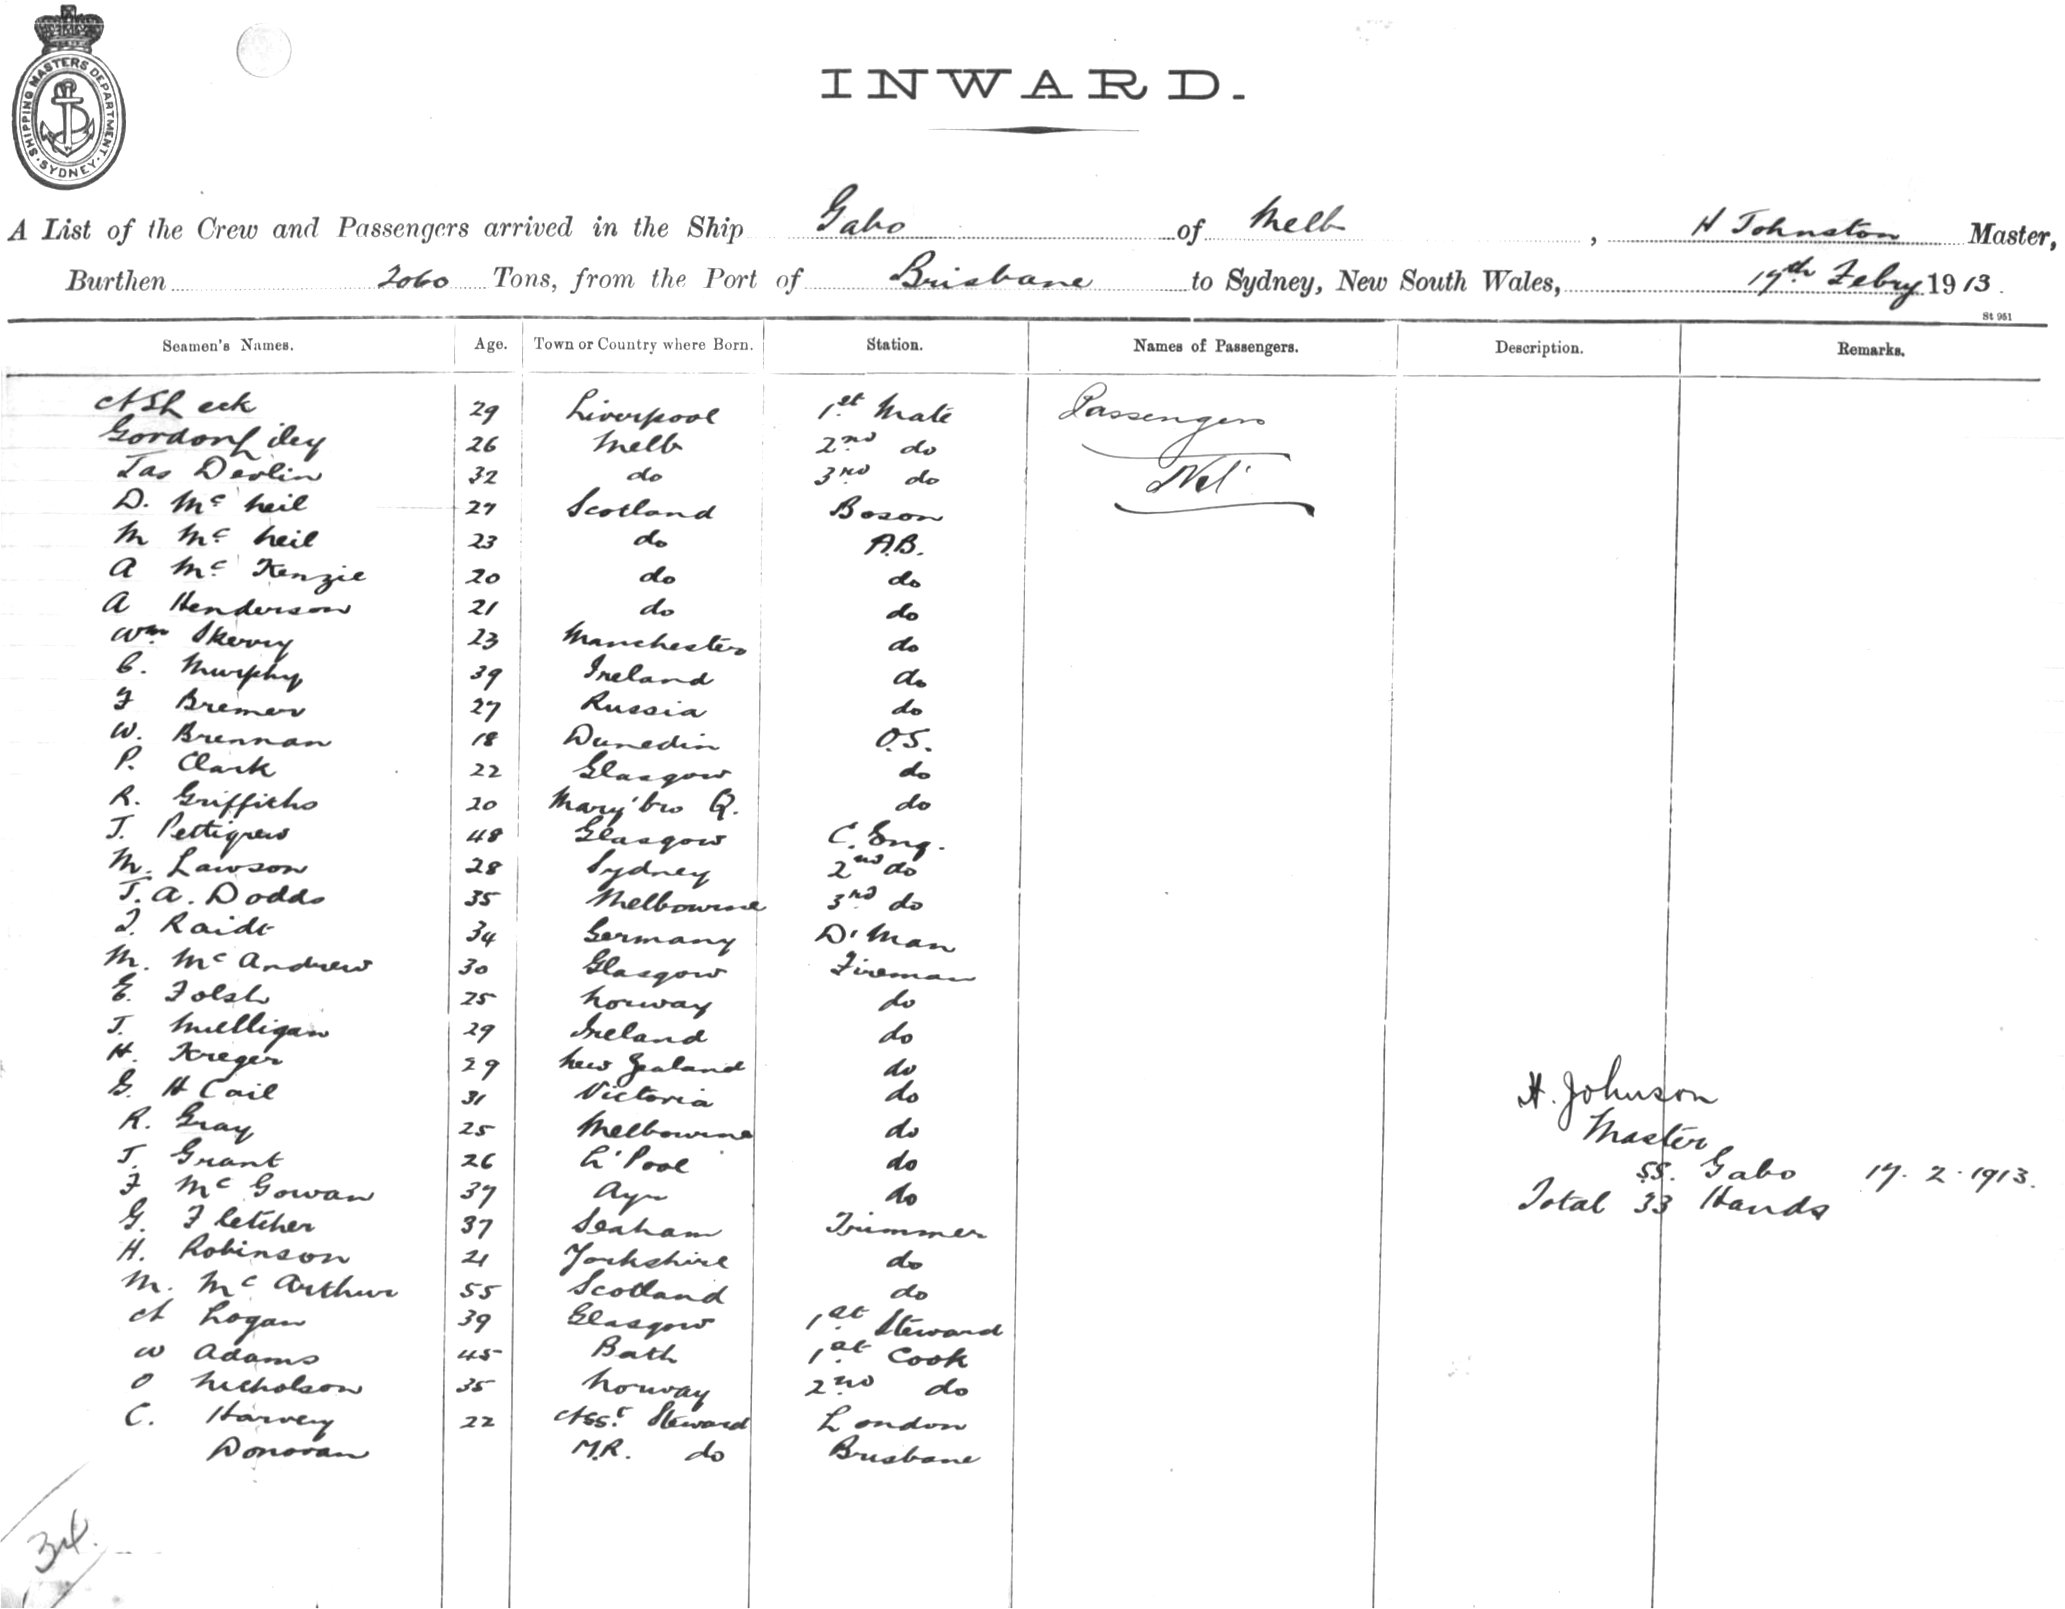 SHIPPING MASTERS DEPARTMENT. SYDNEY.
INWARD.
A List of the Crew and Passengers arrived in the Ship Gabo of Melb, H Johnston Master,
Burthen 2060 Tons, from the Port of Brisbane to Sydney, New South Wales, 17th Febry 1913.
St 961
Seamen's Names. Age. Town or Country where Born. Station. Names of Passengers. Description. Remarks.
29 Liverpool 1st Mate Passengers
Gordon 26 Melb 2nd do
Jas Devlin 32 do 3rd do Nil
D. Mc Neil 27 Scotland Boson
M Mc Neil 23 do A.B.
A Mc Kenzie 20 do do
A Henderson 21 do do
Wm Skerry 23 Manchester do
C. Murphy 39 Ireland do
F Bremer 27 Russia do
W. Brennan 18 Dunedin O.S.
P. Clark 22 Glasgow do
R. Griffiths 20 Mary'bro Q. do
J. Pettigrew 48 Glasgow C. Eng.
M. Lawson 28 Sydney 2nd do
J. A. Dodds 35 Melbourne 3rd do
J. Raidt 34 Germany D'Man
M. Mc Andrew 30 Glasgow Fireman
E. Folsh 25 Norway do
J. Mulligan 29 Ireland do
H. Kreger 29 New Zealand do
G. H Cail 31 Victoria do
R. Gray 25 Melbourne do
J. Grant 26 L'Pool do
F Mc Gowan 37 Ayr do
G. Fletcher 37 Seaham Trimmer
H. Robinson 21 Yorkshire do
M. Mc Arthur 55 Scotland do
A Logan 39 Glasgow 1st Steward
W Adams 45 Bath 1st Cook
O Nicholson 35 Norway 2nd do
C. Harvey 22 Asst Steward London
Donovan M.R. do Brisbane
H. Johnson
Master
SS. Gabo 17.2.1913.
Total 33 Hands
34.